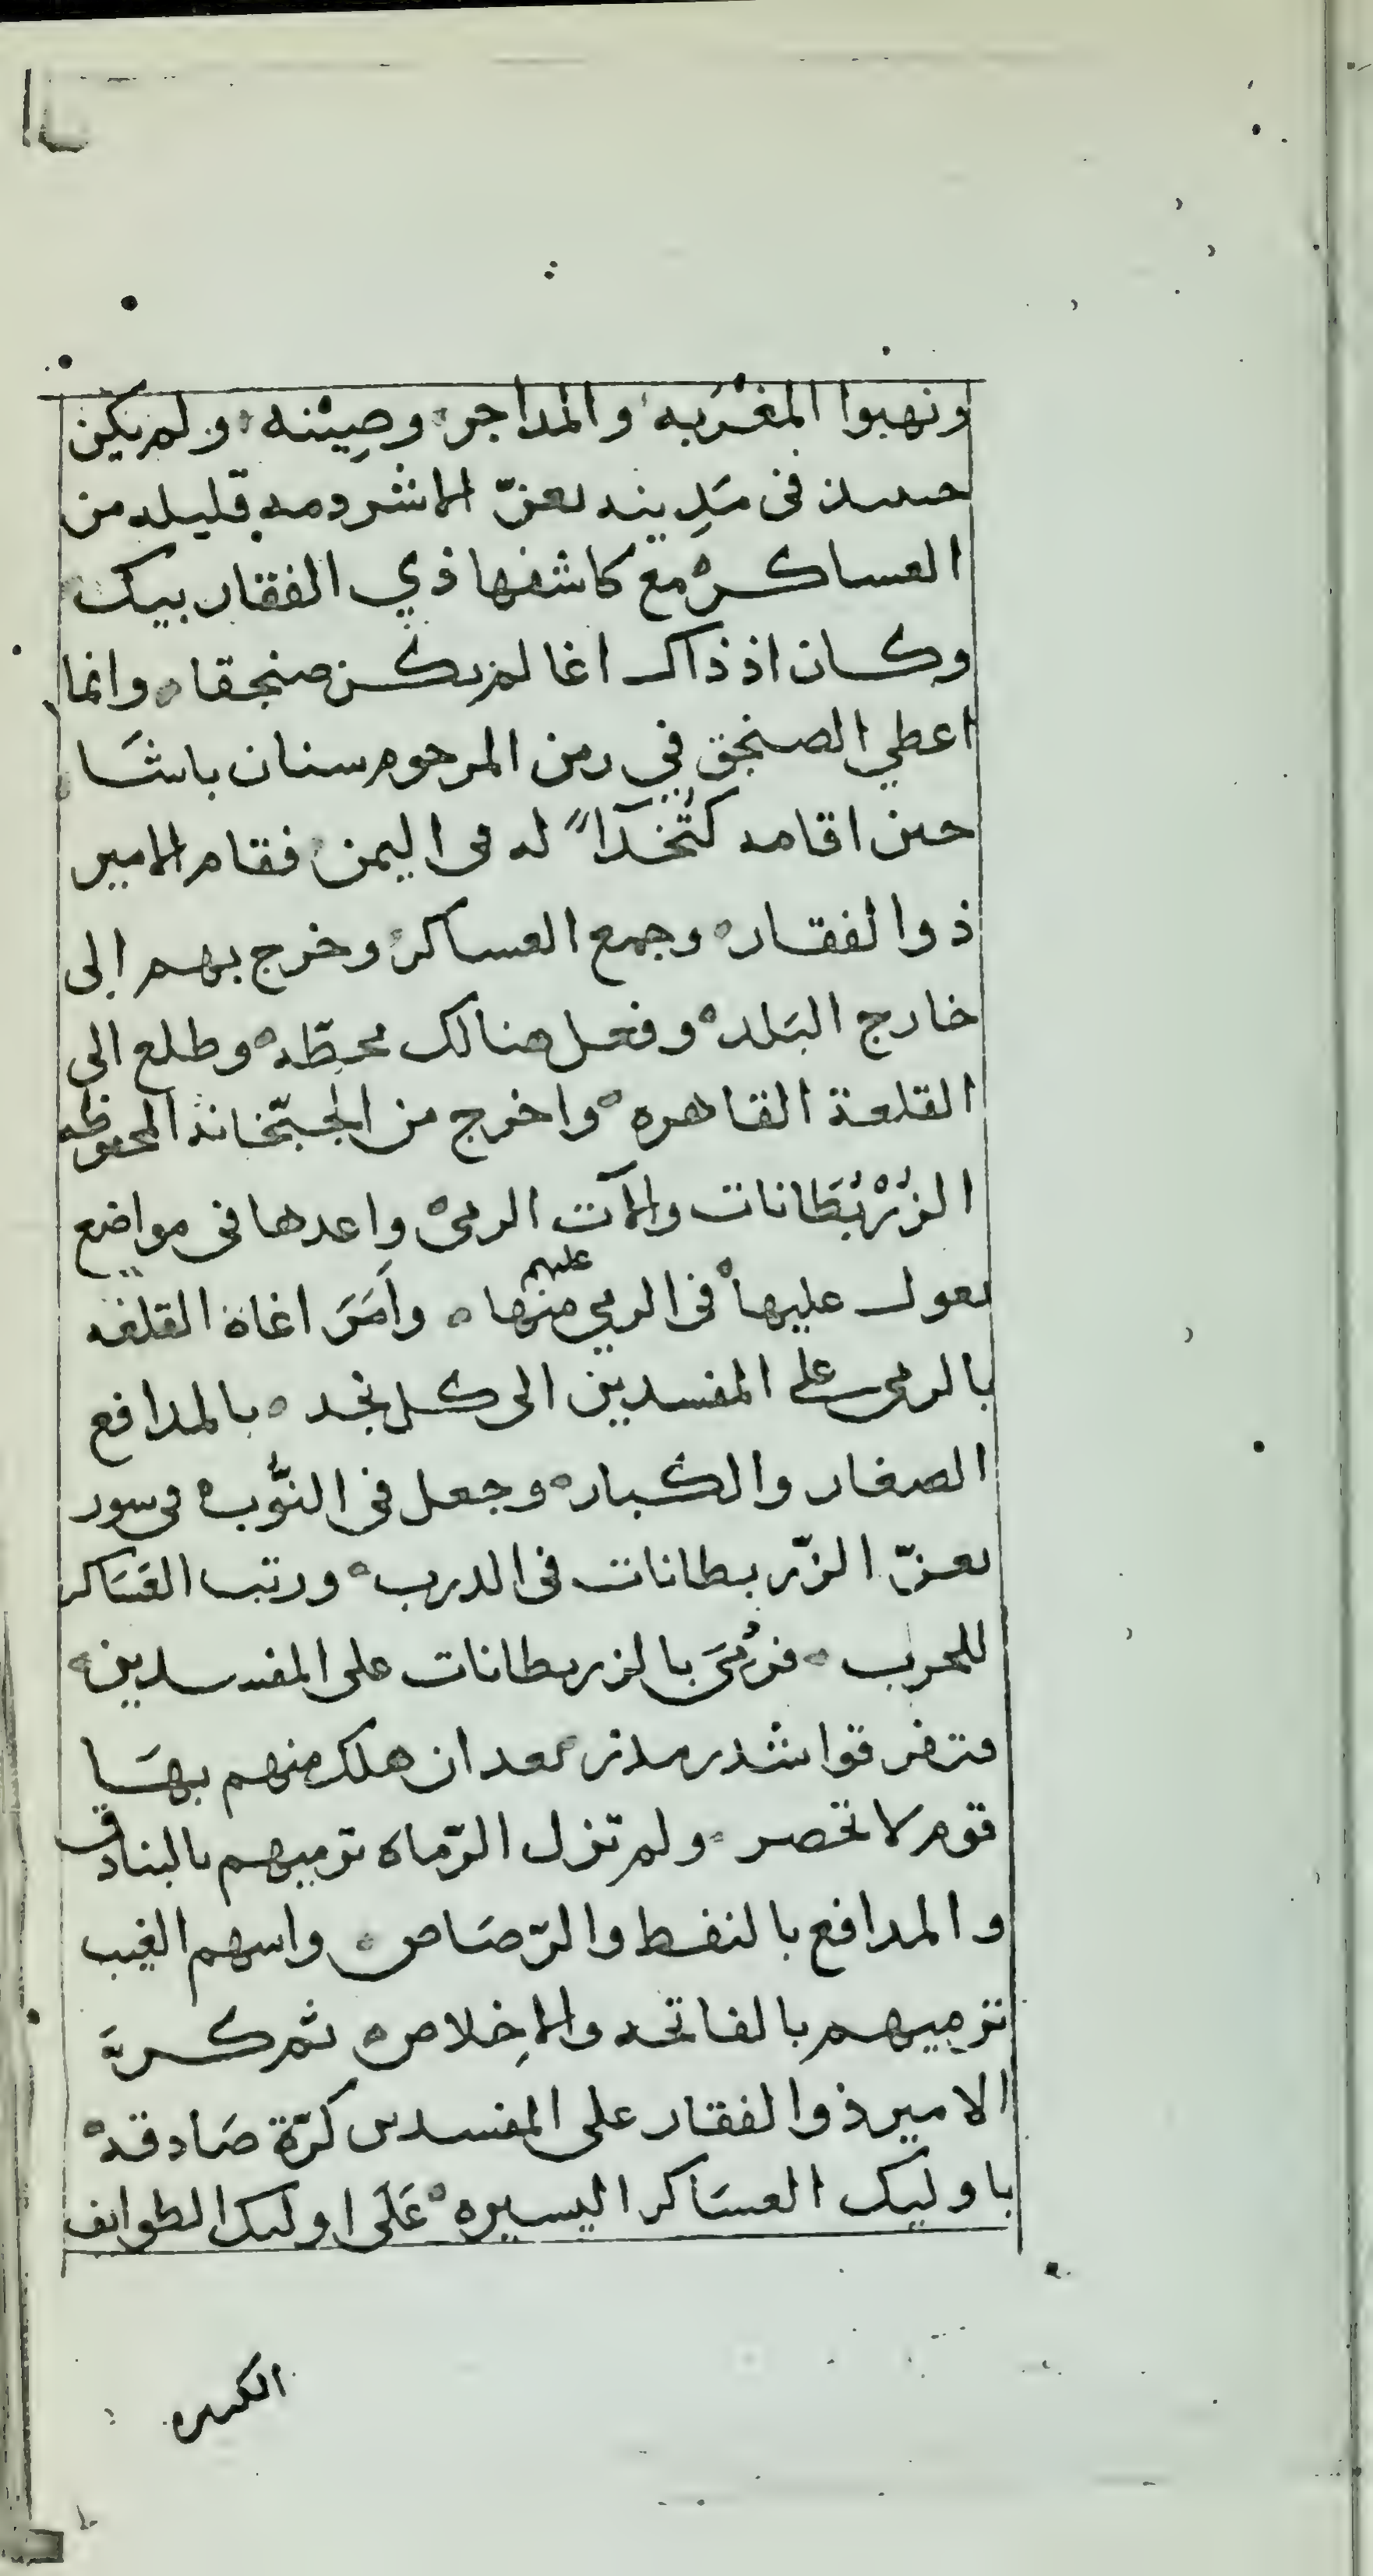 ونهبوا المغربه والمداجر وصينه ولم يكن
حينيذ في مدينه تعزّ الا شرذمه قليله من
العساكر مع كاشفها ذي الفقار بيك
وكان اذ ذاك اغا لم يكن صنجقا وانما
اعطي الصنجق في زمن المرحوم سنان باشا
حين اقامه كُتْخَدَآءً له في اليمن فقام الامير
ذو الفقار وجمع العساكر وخرج بهم إلى
خارج البَلد وفعل هنالك محطّه وطلع الى
القلعة القاهره واخرج من الجبّخانة المحفوظه
الزُرْبُطَانات والآت الرمي واعدها في مواضع
يعول عليها في الرمي عليهم منها وأَمَرَ اغاة القلعه
بالرمي على المفسدين الى كل نجد بالمدافع
الصغار والكبار وجعل في النُّوَب في سور
تعزّ الزّربطانات في الدرب ورتب العَسَاكر
للحرب فرُمَيَ بالزربطانات على المفسدين
فتفرقوا شذر مذر بعد ان هلك منهم بهَا
قوم لا تحصر ولم تزل الرّماه ترميهم بالبنادق
والمدافع بالنفط والرّصَاص واسهم الغيب
ترميهم بالفاتحه والإخلاص ثم كرَّ
الامير ذو الفقار على المفسدين كرّة صَادقة
باوليك العسَاكر اليسيره عَلَى اوليك الطوايف
الكثيره